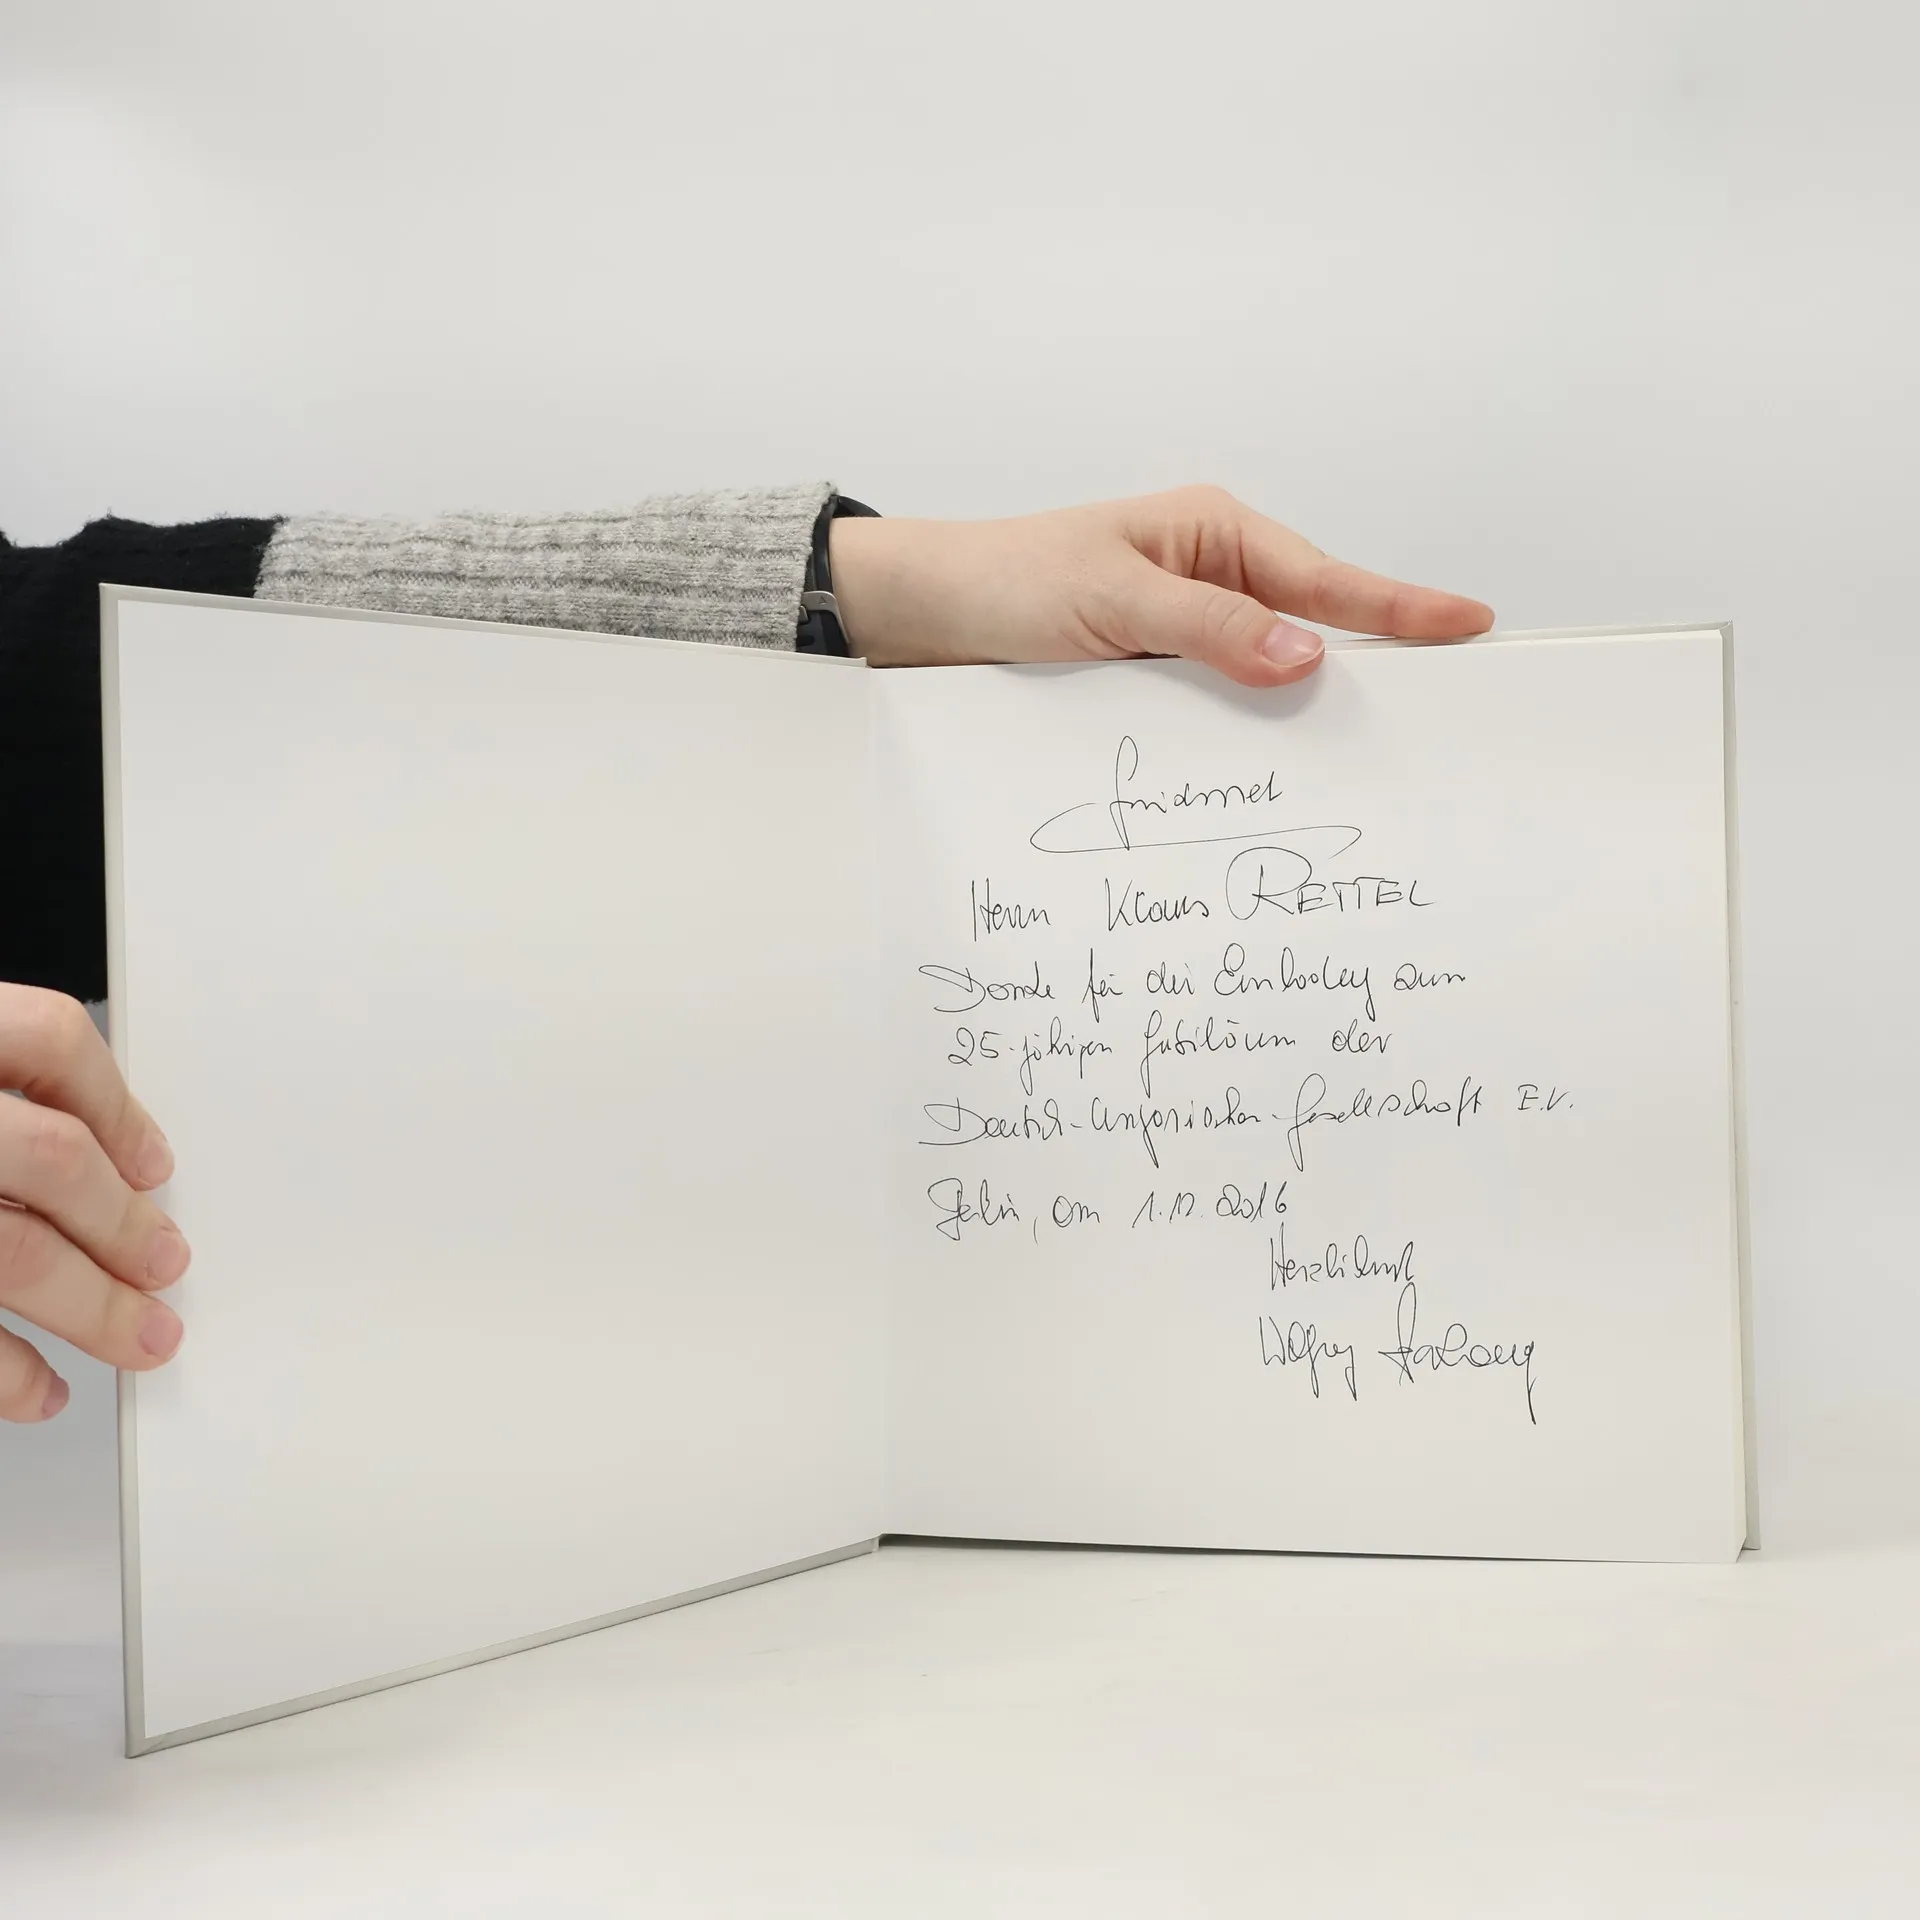 Gewidmet
Herrn Klaus RETTEL
Danke für die Einladung zum
25-jährigen Jubiläum der
Deutsch-Ungarischen-Gesellschaft E.V.
Berlin, am 1.12.2016
Herzlichst